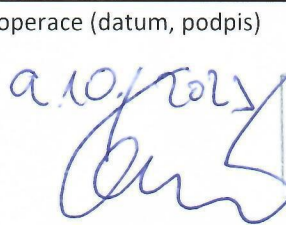 operace (datum, podpis)
9.10. 2023